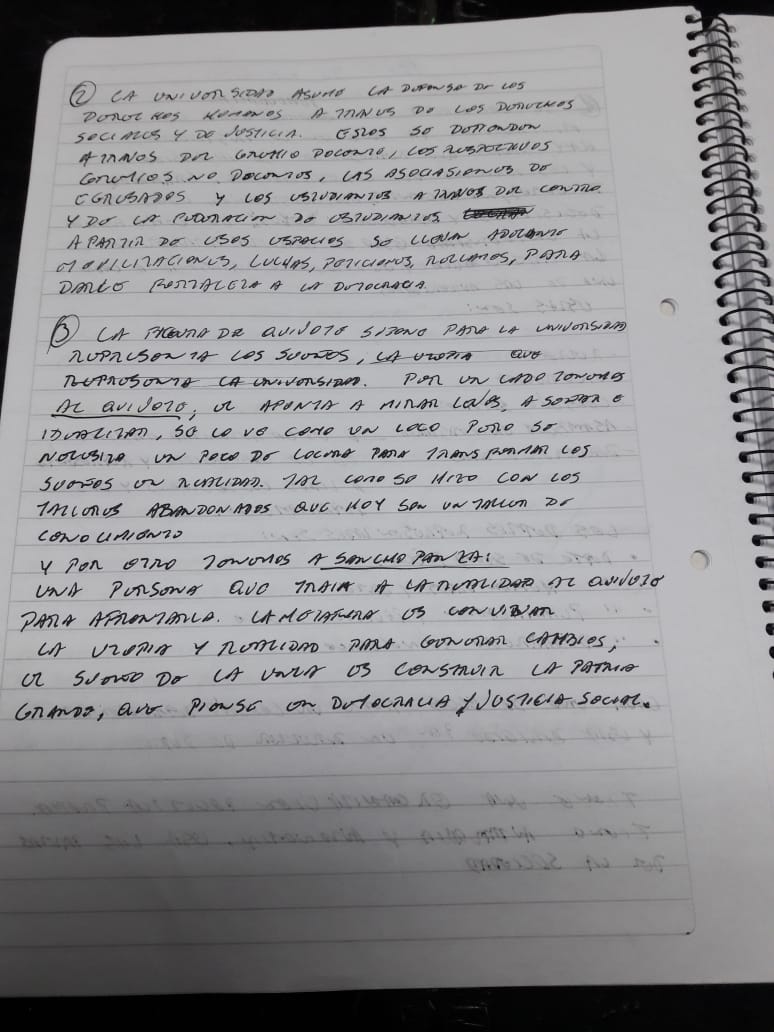 ② LA UNIVERSIDAD ASUME LA DEFENSA DE LOS
DERECHOS HUMANOS A TRAVES DE LOS DERECHOS
SOCIALES Y DE JUSTICIA. ESTOS SE DEFIENDEN
A TRAVES DEL GREMIO DOCENTE, LOS RESPECTIVOS
GREMIOS NO DOCENTES, LAS ASOCIASIONES DE
EGRESADOS Y LOS ESTUDIANTES A TRAVES DEL CENTRO
Y DE LA FEDERACION DE ESTUDIANTES
A PARTIR DE ESOS ESPACIOS SE LLEVAN ADELANTE
MOVILIZACIONES, LUCHAS, PETICIONES, RECLAMOS, PARA
DARLE FORTALEZA A LA DEMOCRACIA.
③ LA FIGURA DE QUIJOTE SITENE PARA LA UNIVERSIDAD
REPRESENTA LOS SUEÑOS, LA UTOPIA QUE
REPRESENTA LA UNIVERSIDAD. POR UN LADO TENEMOS
AL QUIJOTE, EL APUNTA A MIRAR LEJOS, A SOÑAR E
IDEALIZAR, SE LO VE COMO UN LOCO PERO SE
NECESITA UN POCO DE LOCURA PARA TRANSFORMAR LOS
SUEÑOS EN REALIDAD. TAL COMO SE HIZO CON LOS
TALLERES ABANDONADOS QUE HOY SON UN TALLER DE
CONOCIMIENTO
Y POR OTRO TENEMOS A SANCHO PANZA:
UNA PERSONA QUE TRAIA A LA REALIDAD AL QUIJOTE
PARA AFRONTARLA. LA METAFORA ES CONVIVAN
LA UTOPIA Y REALIDAD PARA GENERAR CAMBIOS,
EL SUEÑO DE LA UNLA ES CONSTRUIR LA PATRIA
GRANDE, QUE PIENSE EN DEMOCRACIA Y JUSTICIA SOCIAL.